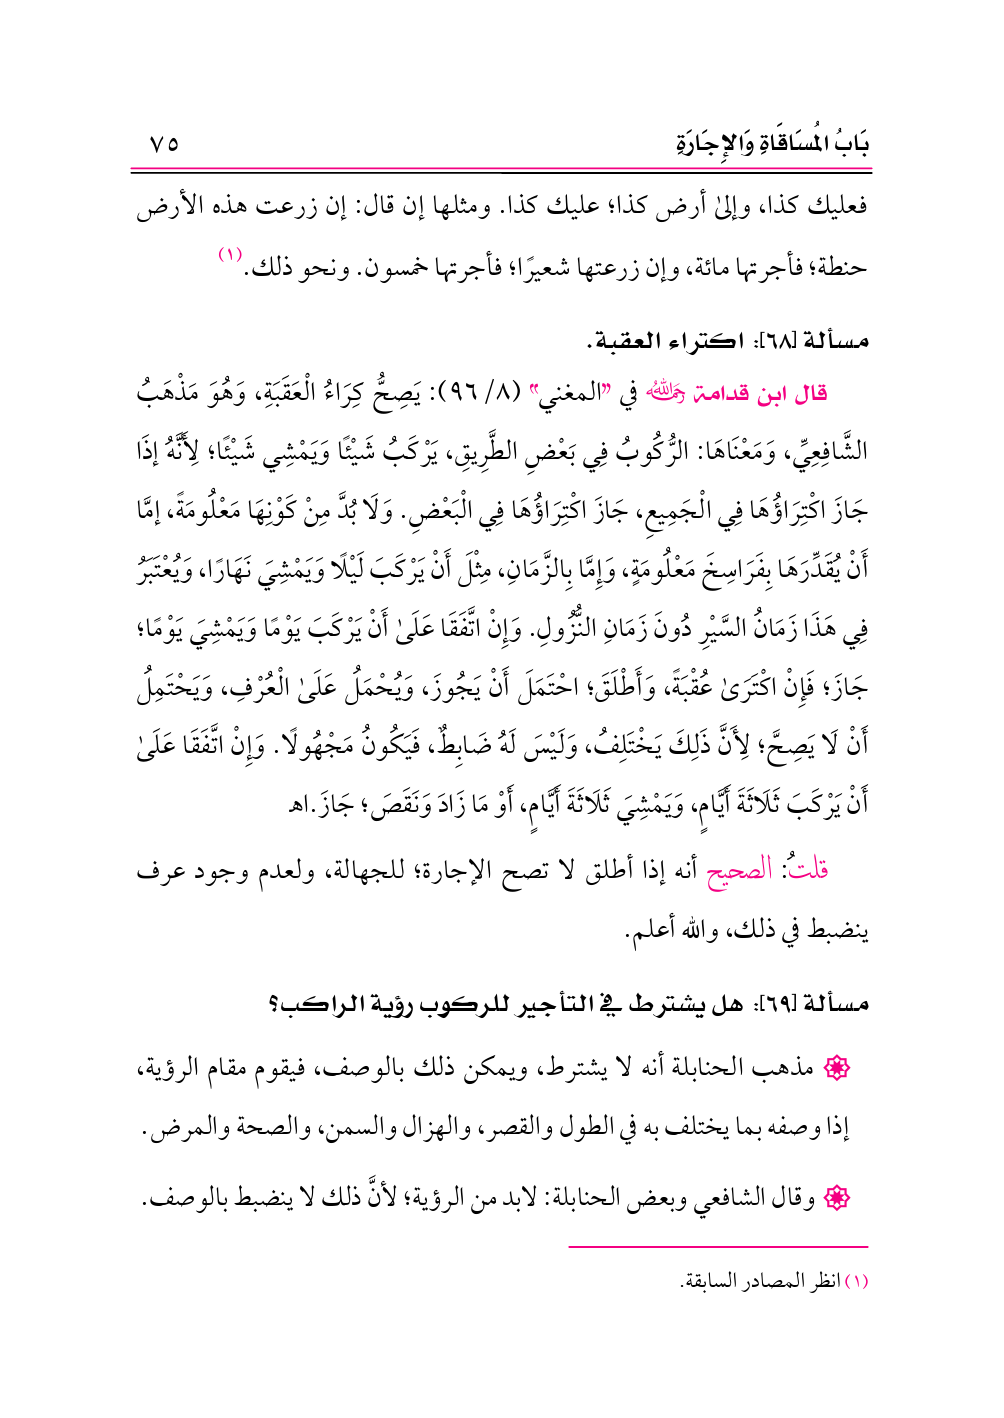 بَابُ الْمُسَاقَاةِ وَالإِجَارَةِ
٧٥
فعليك كذا، وإلىٰ أرض كذا؛ عليك كذا. ومثلها إن قال: إن زرعت هذه الأرض
حنطة؛ فأجرتها مائة، وإن زرعتها شعيرًا؛ فأجرتها خمسون. ونحو ذلك.(١)
مسألة [٦٨]: اكتراء العقبة.
قال ابن قدامة رَحِمَهُ اللهُ في "المغني" (٨/ ٩٦): يَصِحُّ كِرَاءُ الْعَقَبَةِ، وَهُوَ مَذْهَبُ
الشَّافِعِيِّ، وَمَعْنَاهَا: الرُّكُوبُ فِي بَعْضِ الطَّرِيقِ، يَرْكَبُ شَيْئًا وَيَمْشِي شَيْئًا؛ لِأَنَّهُ إِذَا
جَازَ اكْتِرَاؤُهَا فِي الْجَمِيعِ، جَازَ اكْتِرَاؤُهَا فِي الْبَعْضِ. وَلَا بُدَّ مِنْ كَوْنِهَا مَعْلُومَةً، إمَّا
أَنْ يُقَدِّرَهَا بِفَرَاسِخَ مَعْلُومَةٍ، وَإِمَّا بِالزَّمَانِ، مِثْلَ أَنْ يَرْكَبَ لَيْلًا وَيَمْشِيَ نَهَارًا، وَيُعْتَبَرُ
فِي هَذَا زَمَانُ السَّيْرِ دُونَ زَمَانِ النُّزُولِ. وَإِنْ اتَّفَقَا عَلَىٰ أَنْ يَرْكَبَ يَوْمًا وَيَمْشِيَ يَوْمًا؛
جَازَ؛ فَإِنْ اكْتَرَىٰ عُقْبَةً، وَأَطْلَقَ؛ احْتَمَلَ أَنْ يَجُوزَ، وَيُحْمَلُ عَلَىٰ الْعُرْفِ، وَيَحْتَمِلُ
أَنْ لَا يَصِحَّ؛ لِأَنَّ ذَلِكَ يَخْتَلِفُ، وَلَيْسَ لَهُ ضَابِطٌ، فَيَكُونُ مَجْهُولًا. وَإِنْ اتَّفَقَا عَلَىٰ
أَنْ يَرْكَبَ ثَلَاثَةَ أَيَّامٍ، وَيَمْشِيَ ثَلَاثَةَ أَيَّامٍ، أَوْ مَا زَادَ وَنَقَصَ؛ جَازَ.اهـ
قلتُ: الصحيح أنه إذا أطلق لا تصح الإجارة؛ للجهالة، ولعدم وجود عرف
ينضبط في ذلك، والله أعلم.
مسألة [٦٩]: هل يشترط في التأجير للركوب رؤية الراكب؟
مذهب الحنابلة أنه لا يشترط، ويمكن ذلك بالوصف، فيقوم مقام الرؤية،
إذا وصفه بما يختلف به في الطول والقصر، والهزال والسمن، والصحة والمرض.
وقال الشافعي وبعض الحنابلة: لابد من الرؤية؛ لأنَّ ذلك لا ينضبط بالوصف.
(١) انظر المصادر السابقة.